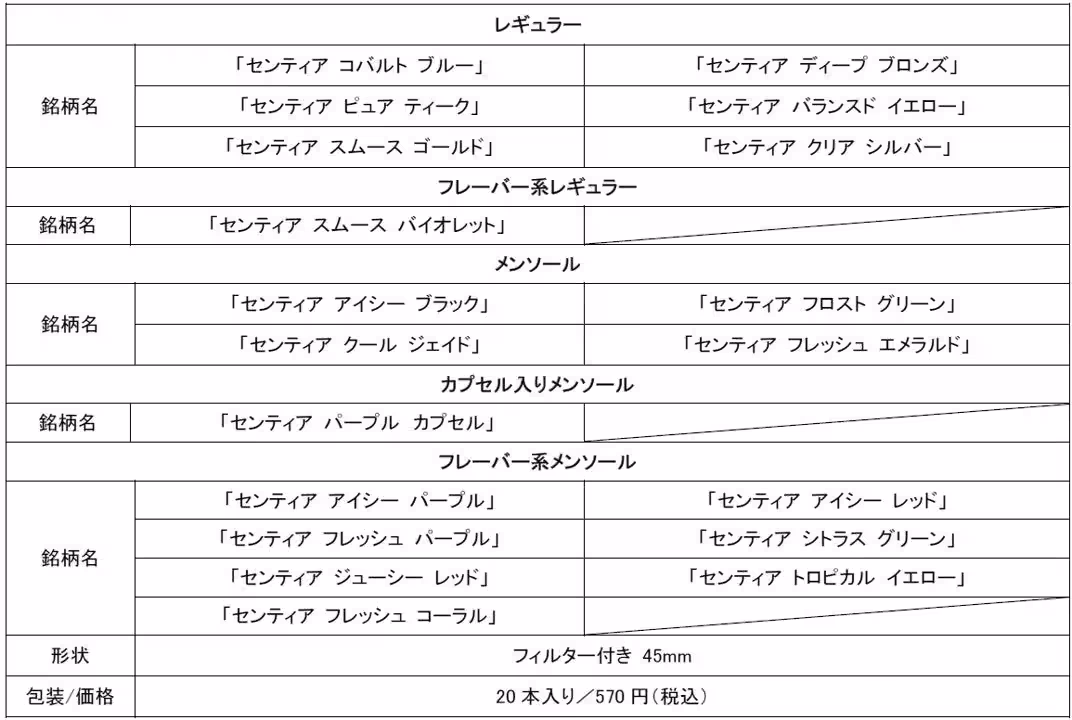 レギュラー
銘柄名
「センティア コバルト ブルー」 「センティア ディープ ブロンズ」
「センティア ピュア ティーク」 「センティア バランスド イエロー」
「センティア スムース ゴールド」 「センティア クリア シルバー」
フレーバー系レギュラー
銘柄名 「センティア スムース バイオレット」
メンソール
銘柄名
「センティア アイシー ブラック」 「センティア フロスト グリーン」
「センティア クール ジェイド」 「センティア フレッシュ エメラルド」
カプセル入りメンソール
銘柄名 「センティア パープル カプセル」
フレーバー系メンソール
銘柄名
「センティア アイシー パープル」 「センティア アイシー レッド」
「センティア フレッシュ パープル」 「センティア シトラス グリーン」
「センティア ジューシー レッド」 「センティア トロピカル イエロー」
「センティア フレッシュ コーラル」
形状 フィルター付き 45mm
包装/価格 20 本入り／570 円（税込）